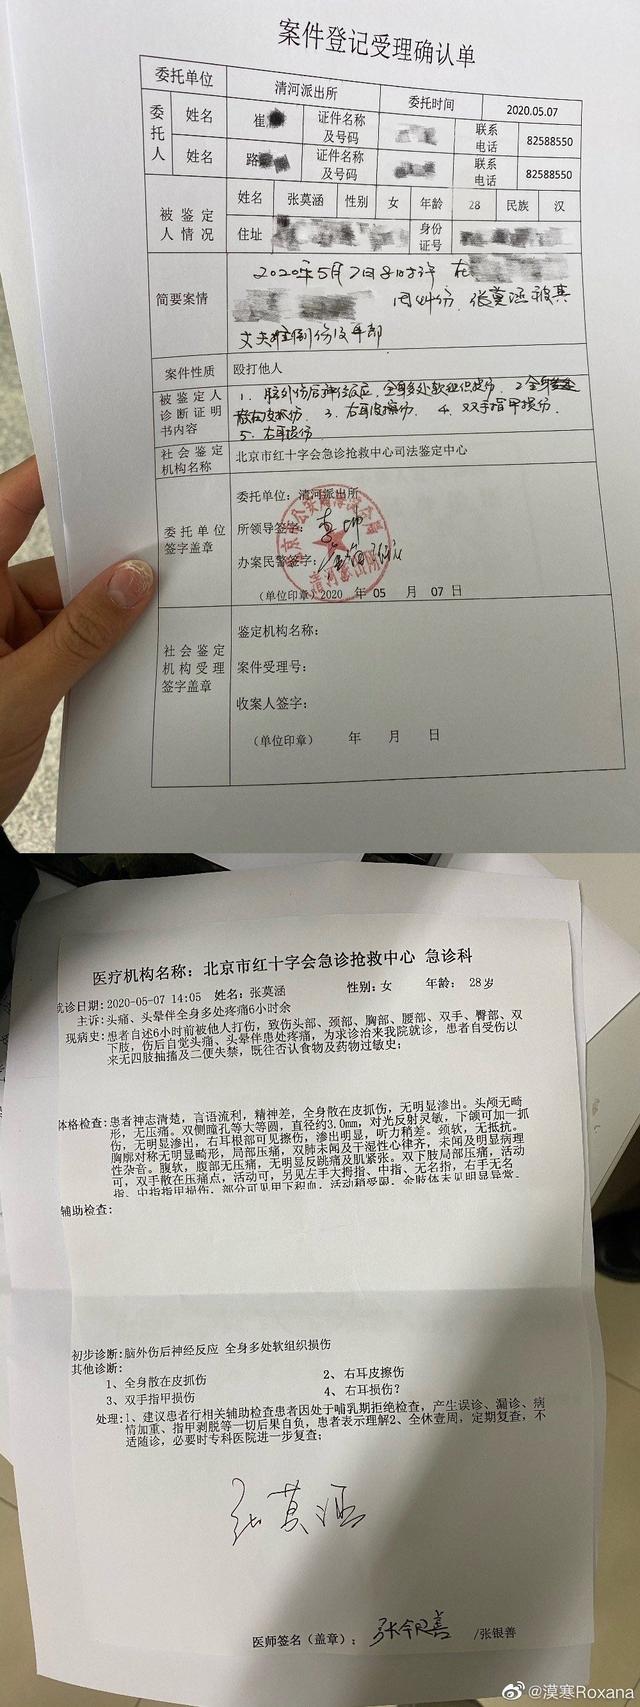 案件登记受理确认单
委托单位 清河派出所 委托时间 2020.05.07
委托人 姓名 崔 证件名称及号码 联系电话 82588550
姓名 路 证件名称及号码 联系电话 82588550
被鉴定人情况 姓名 张莫涵 性别 女 年龄 28 民族 汉
住址 身份证号
简要案情 2020年5月7日8时许 在
同 张莫涵被其
丈夫
案件性质 殴打他人
被鉴定人诊断证明书内容 1、脑外伤后神经反应,全身多处软组织损伤、2全身
散在皮抓伤、3、右耳皮擦伤、4、双手指甲损伤、
5、右耳损伤
社会鉴定机构名称 北京市红十字会急诊抢救中心司法鉴定中心
委托单位签字盖章
委托单位:清河派出所
所领导签字:
办案民警签字:
(单位印章)2020 年 05 月 07 日
社会鉴定机构受理签字盖章
鉴定机构名称:
案件受理号:
收案人签字:
(单位印章) 年 月 日
医疗机构名称:北京市红十字会急诊抢救中心 急诊科
就诊日期:2020-05-07 14:05 姓名:张莫涵 性别:女 年龄: 28岁
主诉:头痛、头晕伴全身多处疼痛6小时余
现病史:患者自述6小时前被他人打伤,致伤头部、颈部、胸部、腰部、双手、臀部、双
下肢,伤后自觉头痛、头晕伴患处疼痛,为求诊治来我院就诊,患者自受伤以
来无四肢抽搐及二便失禁,既往否认食物及药物过敏史;
体格检查:患者神志清楚,言语流利,精神差,全身散在皮抓伤,无明显渗出。头颅无畸
形,无压痛。双侧瞳孔等大等圆,直径约3.0mm,对光反射灵敏,下颌可加一抓
伤,无明显渗出,右耳根部可见擦伤,渗出明显,听力稍差。颈软,无抵抗。
胸廓对称无明显畸形,局部压痛,双肺未闻及干湿性心律齐,未闻及明显病理
性杂音。腹软,腹部无压痛,无明显反跳痛及肌紧张。双下肢局部压痛,活动
可,双手散在压痛点,活动可,另见左手大拇指、中指、无名指,右手无名
指、中指指甲损伤,部分可见甲下积血,活动稍受限,余肢体未见明显异常。
辅助检查:
初步诊断:脑外伤后神经反应 全身多处软组织损伤
其他诊断:
1、全身散在皮抓伤 2、右耳皮擦伤
3、双手指甲损伤 4、右耳损伤?
处理:1、建议患者行相关辅助检查患者因处于哺乳期拒绝检查,产生误诊、漏诊、病
情加重、指甲剥脱等一切后果自负,患者表示理解2、全休壹周,定期复查,不
适随诊,必要时专科医院进一步复查;
张莫涵
医师签名(盖章): 张银善 /张银善
@漠寒Roxana